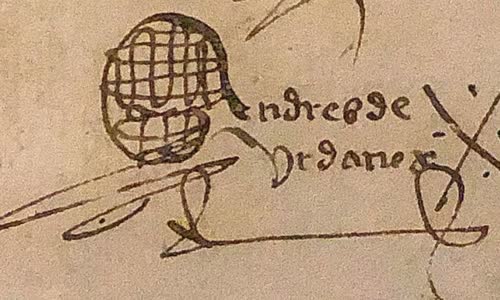 Andres de
Urdaneta